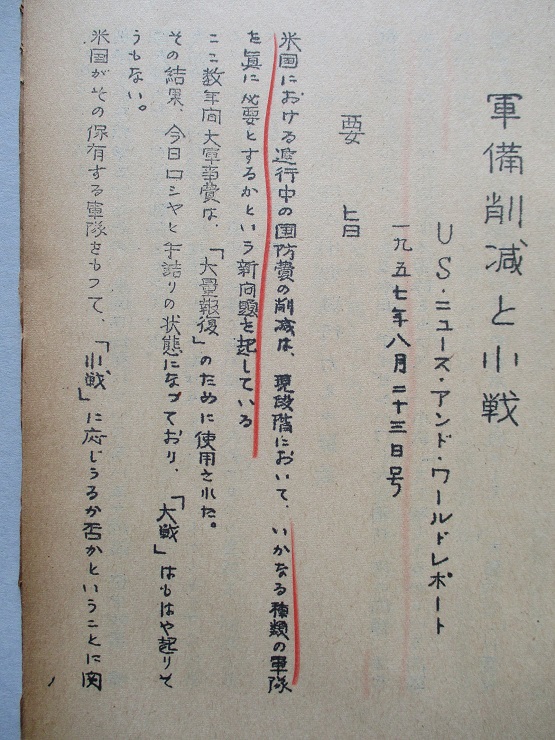 軍備削減と小戦
US・ニュース・アンド・ワールドレポート
一九五七年八月二十三日号
要旨
米国における進行中の国防費の削減は、現段階において、いかなる種類の軍隊
を真に必要とするかという新問題を起している
ここ数年間大軍事費は、「大量報復」のために使用された。
その結果、今日ロシヤと手詰りの状態になっており、「大戦」はもはや起りそ
うもない。
米国がその保有する軍隊をもって、「小戦」に応じうるか否かということに関